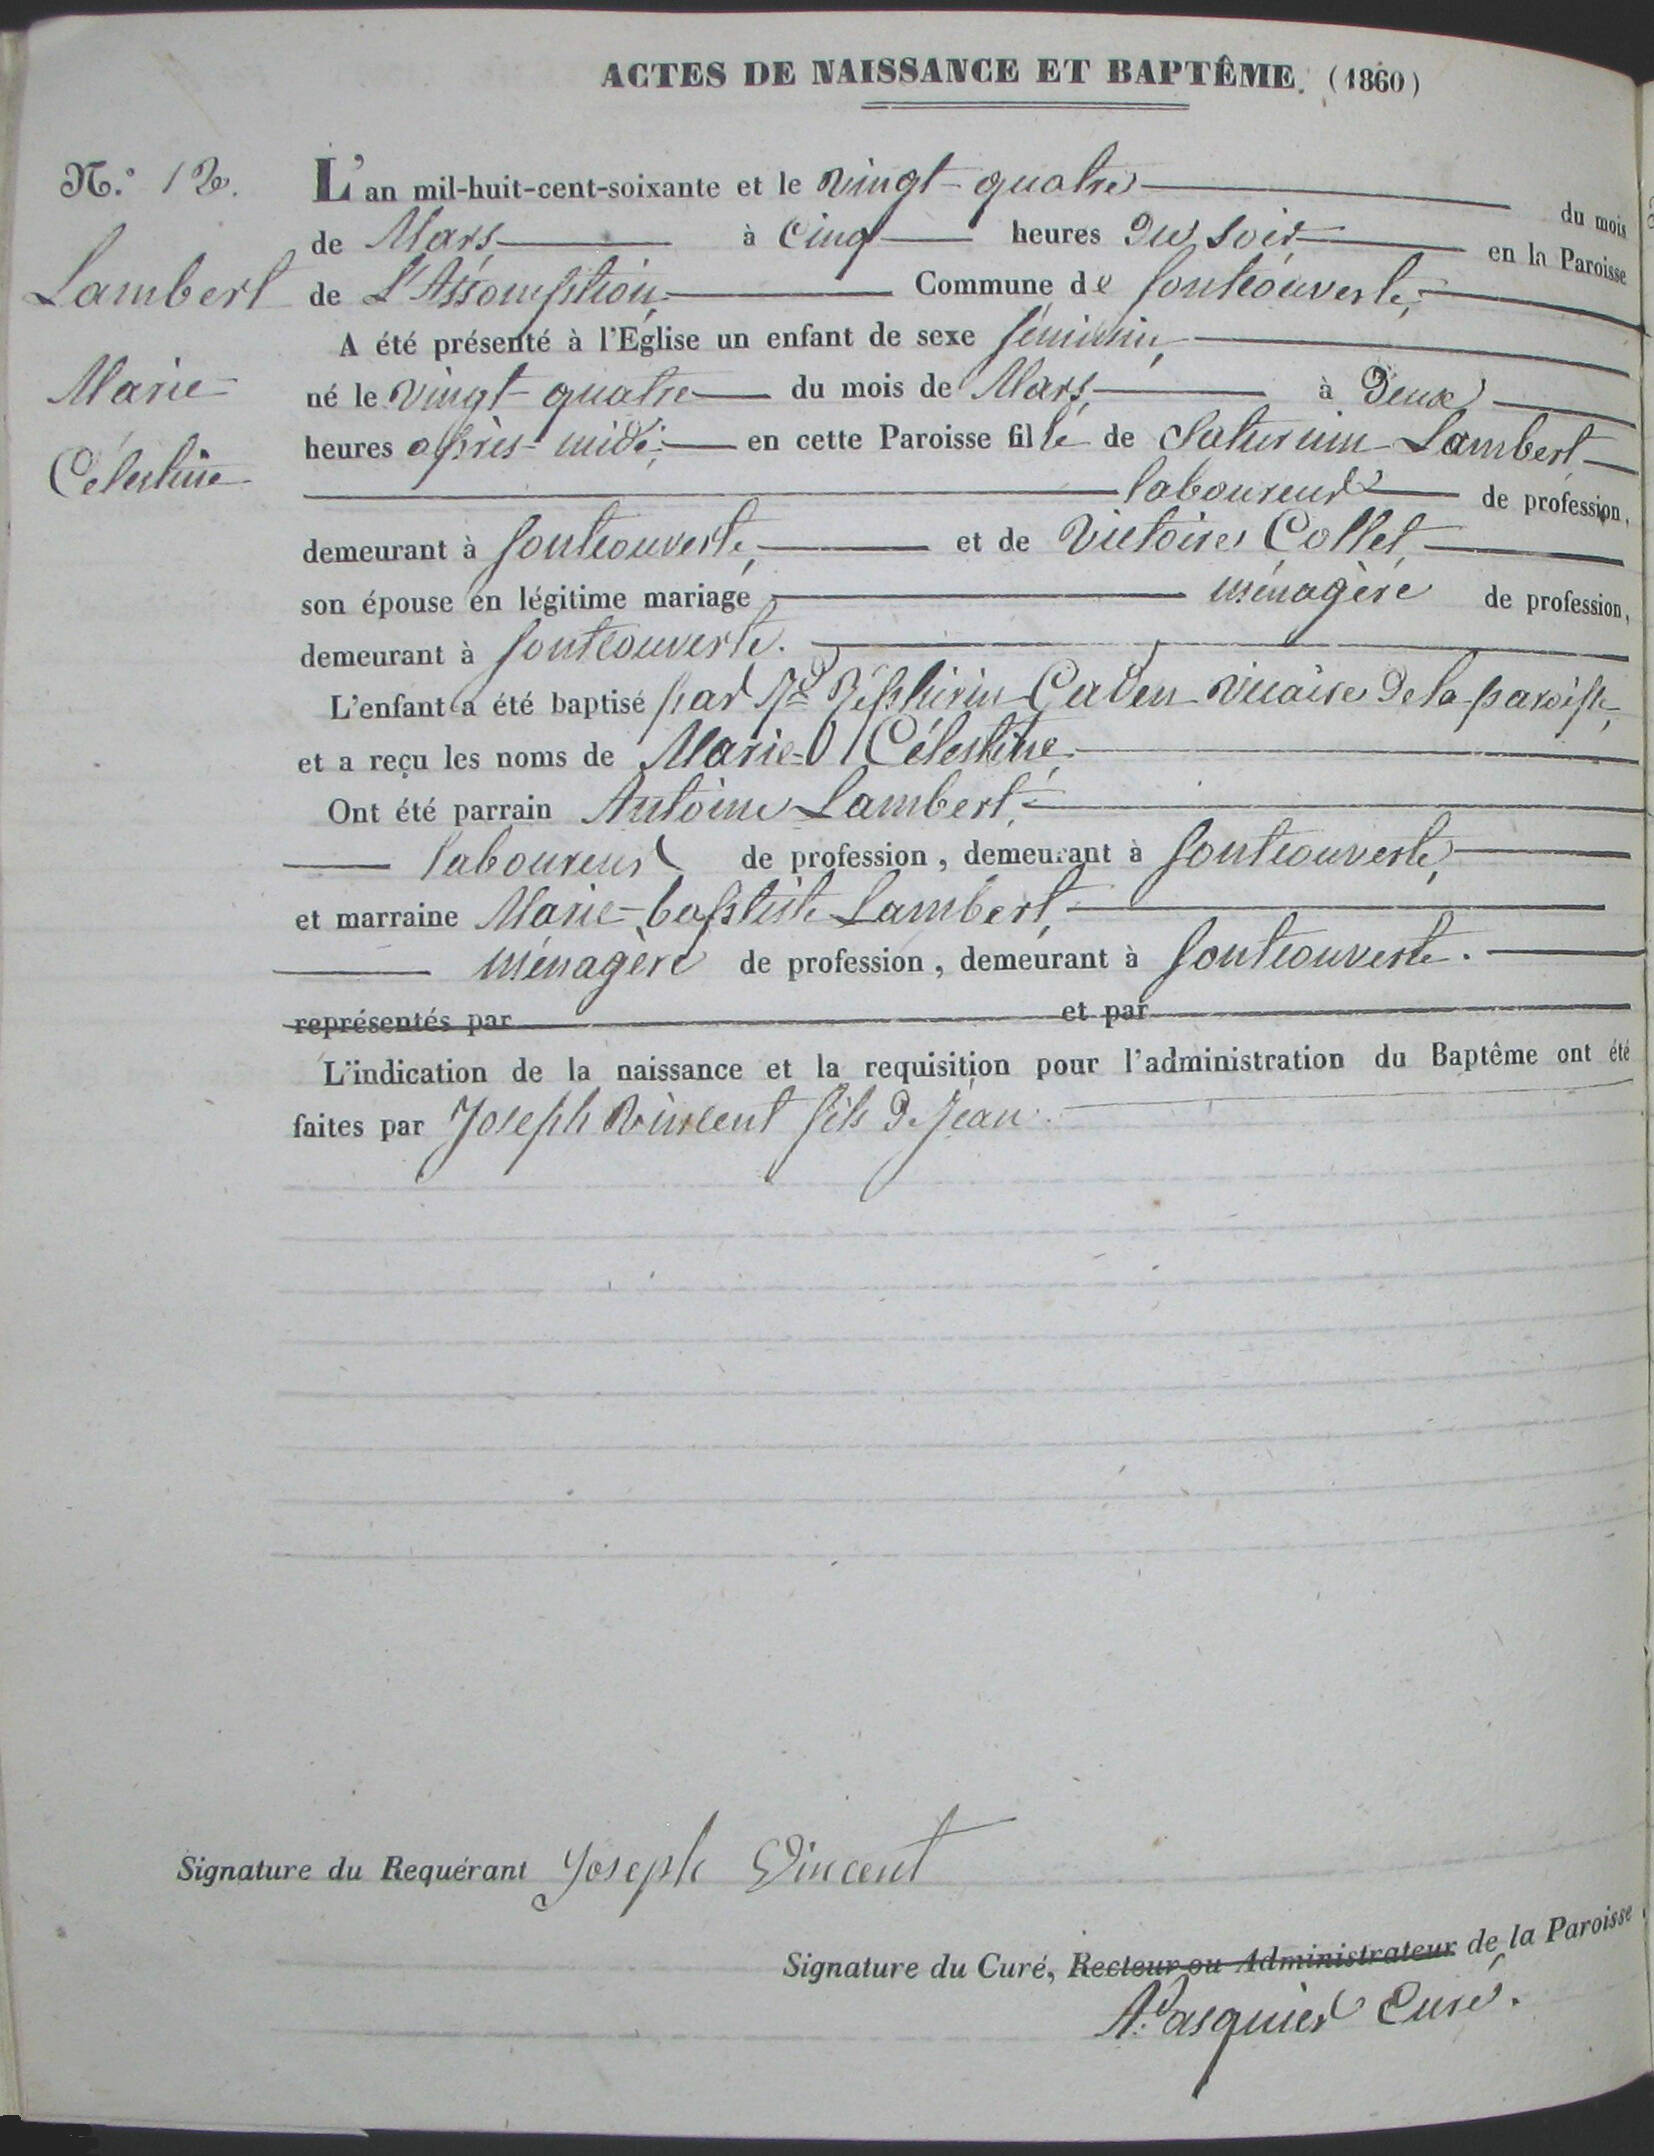 ACTES DE NAISSANCE ET BAPTÊME. (1860)
N.º 12.
Lambert
Marie
Célestine
L'an mil-huit-cent-soixante et le vingt-quatre du mois
de Mars à Cinq heures du soir en la Paroisse
de L'Assomption, Commune de fontcouverte,
A été présenté à l'Église un enfant de sexe féminin,
né le vingt-quatre du mois de Mars à deux
heures après-midi, en cette Paroisse fille de Saturnin Lambert
laboureur de profession,
demeurant à fontcouverte, et de Victoire Collet,
son épouse en légitime mariage ménagère de profession,
demeurant à fontcouverte.
L'enfant a été baptisé par Rd Zéphirin vicaire de la paroisse,
et a reçu les noms de Marie Célestine.
Ont été parrain Antoine Lambert,
laboureur de profession, demeurant à fontcouverte,
et marraine Marie-baptiste Lambert,
ménagère de profession, demeurant à fontcouverte.
représentés par et par
L'indication de la naissance et la requisition pour l'administration du Baptême ont été
faites par Joseph Vincent fils de Jean.
Signature du Requérant Joseph Vincent
Signature du Curé, Recteur ou Administrateur de la Paroisse.
Pasquier Curé.